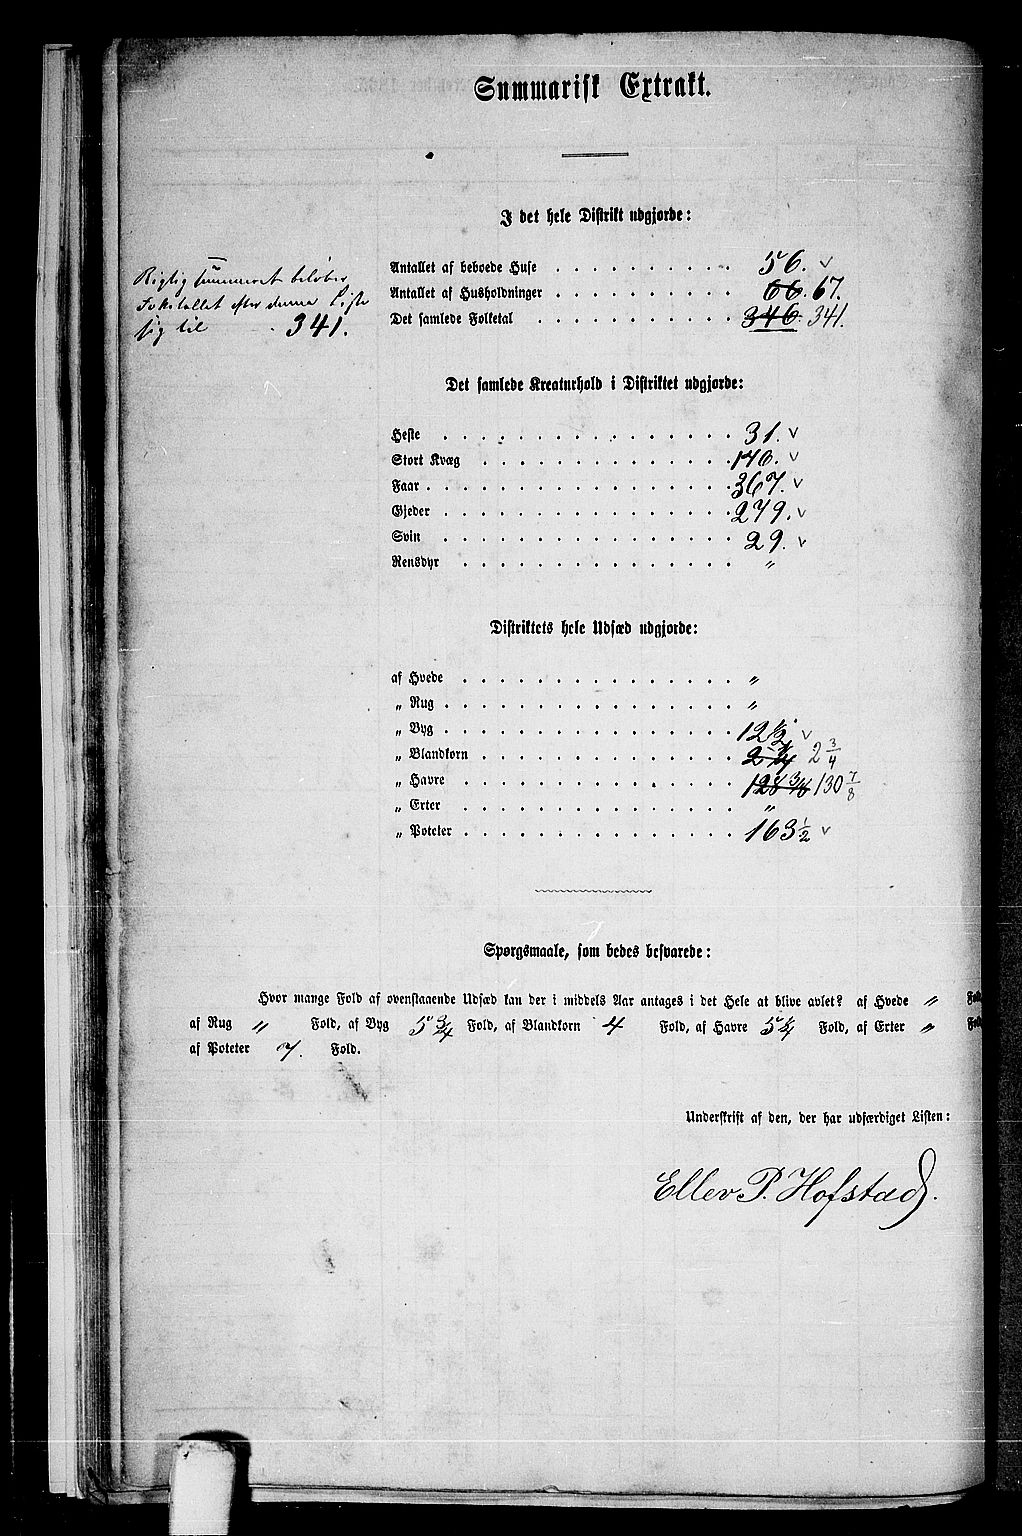 Summarisk Extrakt.
I det hele Distrikt udgjorde:
Rigtig summeret beløber
Folketallet efter denne Liste
sig til - 341.
Antallet af beboede Huse . . . . . . . . . . 56. v
Antallet af Husholdninger . . . . . . . . . . 66. 67.
Det samlede Folketal . . . . . . . . . . . 346. 341.
Det samlede Kreaturhold i Distriktet udgjorde:
Heste . . . . . . . . . . . . . . . . 31. v
Stort Kvæg . . . . . . . . . . . . . . 140. v
Faar . . . . . . . . . . . . . . . . . 367. v
Gjeder . . . . . . . . . . . . . . . . 279. v
Svin . . . . . . . . . . . . . . . . 29. v
Rensdyr . . . . . . . . . . . . . . . "
Distriktets hele Udsæd udgjorde:
af Hvede . . . . . . . . . . . . . . . "
„ Rug . . . . . . . . . . . . . . . . "
„ Byg . . . . . . . . . . . . . . . . 12 1/2 v
„ Blandkorn . . . . . . . . . . . . . . 2 3/4
„ Havre . . . . . . . . . . . . . . . 130 7/8
„ Erter . . . . . . . . . . . . . . . "
„ Poteter . . . . . . . . . . . . . . . 163 1/2 v
Spørgsmaale, som bedes besvarede:
Hvor mange Fold af ovenstaaende Udsæd kan der i middels Aar antages i det Hele at blive avlet? af Hvede " Fold,
af Rug " Fold, af Byg 5 3/4 Fold, af Blandkorn 4 Fold, af Havre 5 1/4 Fold, af Erter " Fold,
af Poteter 7. Fold.
Underskrift af den, der har udfærdiget Listen:
Ellev P. Hofstad.